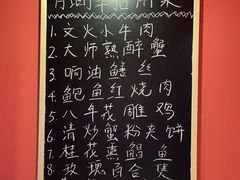 1. 文火小牛肉
2. 大师熟醉蟹
3. 响油鳝丝
4. 鲍鱼红烧肉
5. 八年花雕鸡
6. 清炒蟹粉夹饼
7. 桂花蒸鲳鱼
8. 玫瑰百合